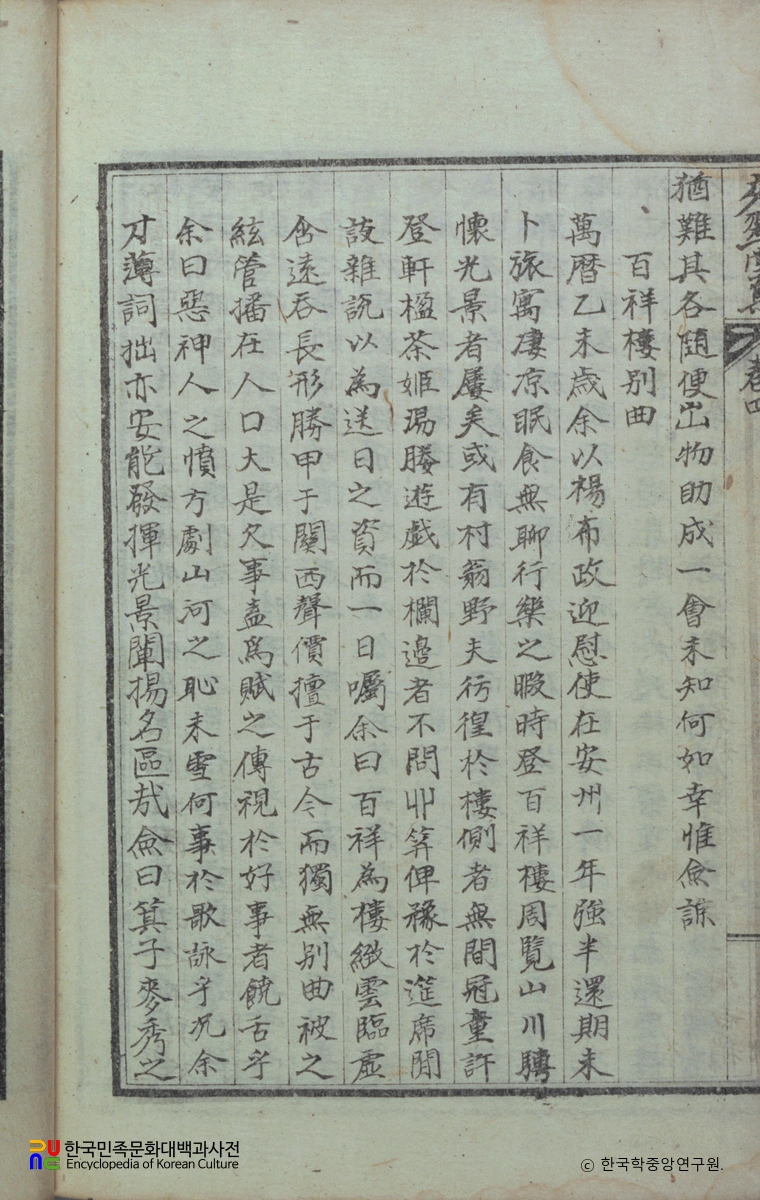 卷四
猶難其各随便出物助成一會未知何如幸惟僉諒
百祥樓別曲
萬曆乙未歲余以楊布政迎慰使在安州一年強半還期未
卜旅寓凄凉眠食無聊行樂之暇時登百祥樓周覧山川騁
懷光景者屢矣或有村翁野夫彷徨於樓側者無間冠童許
登軒楹茶姬湯媵遊戱於欄邉者不問丱筭俾豫於筵席閒
談雜說以為送日之資而一日囑余曰百祥為樓緻雲臨虛
含遠吞長形勝甲于關西聲價擅于古今而獨無別曲被之
絃管播在人口大是欠事盍爲賦之傳視於好事者饒舌乎
余曰惡神人之憤方劇山河之恥未雪何事於歌詠乎况余
才薄詞拙亦安能發揮光景闡揚名區哉僉曰箕子麥秀之
한국민족문화대백과사전
Encyclopedia of Korean Culture
© 한국학중앙연구원.